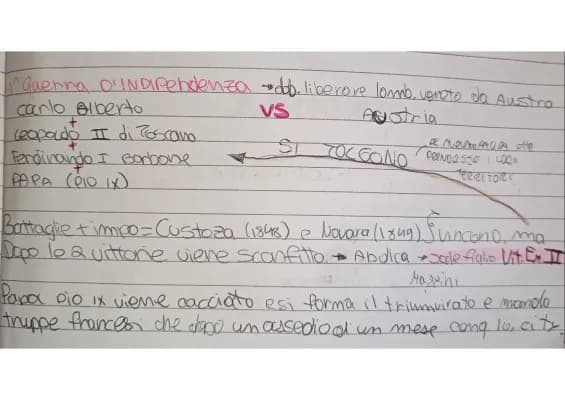 1° guerra D'INDIPENDENZA → ob. liberare lomb. veneto da Austria
carlo Alberto VS AUstria
+
Leopoldo II di Toscana
+
Ferdinando I Borbone SI TOLGONO
+
PAPA (PIO IX) TERRITORI
Battaglie + impo = Custoza (1848) e Novara (1849) vincono, ma
Dopo le 2 vittorie viene sconfitto → Abdica → sale figlio Vit. Em. II
Mazzini
Papa Pio IX viene cacciato e si forma il triumvirato e manda
truppe francesi che dopo un assedio di un mese conq la città.